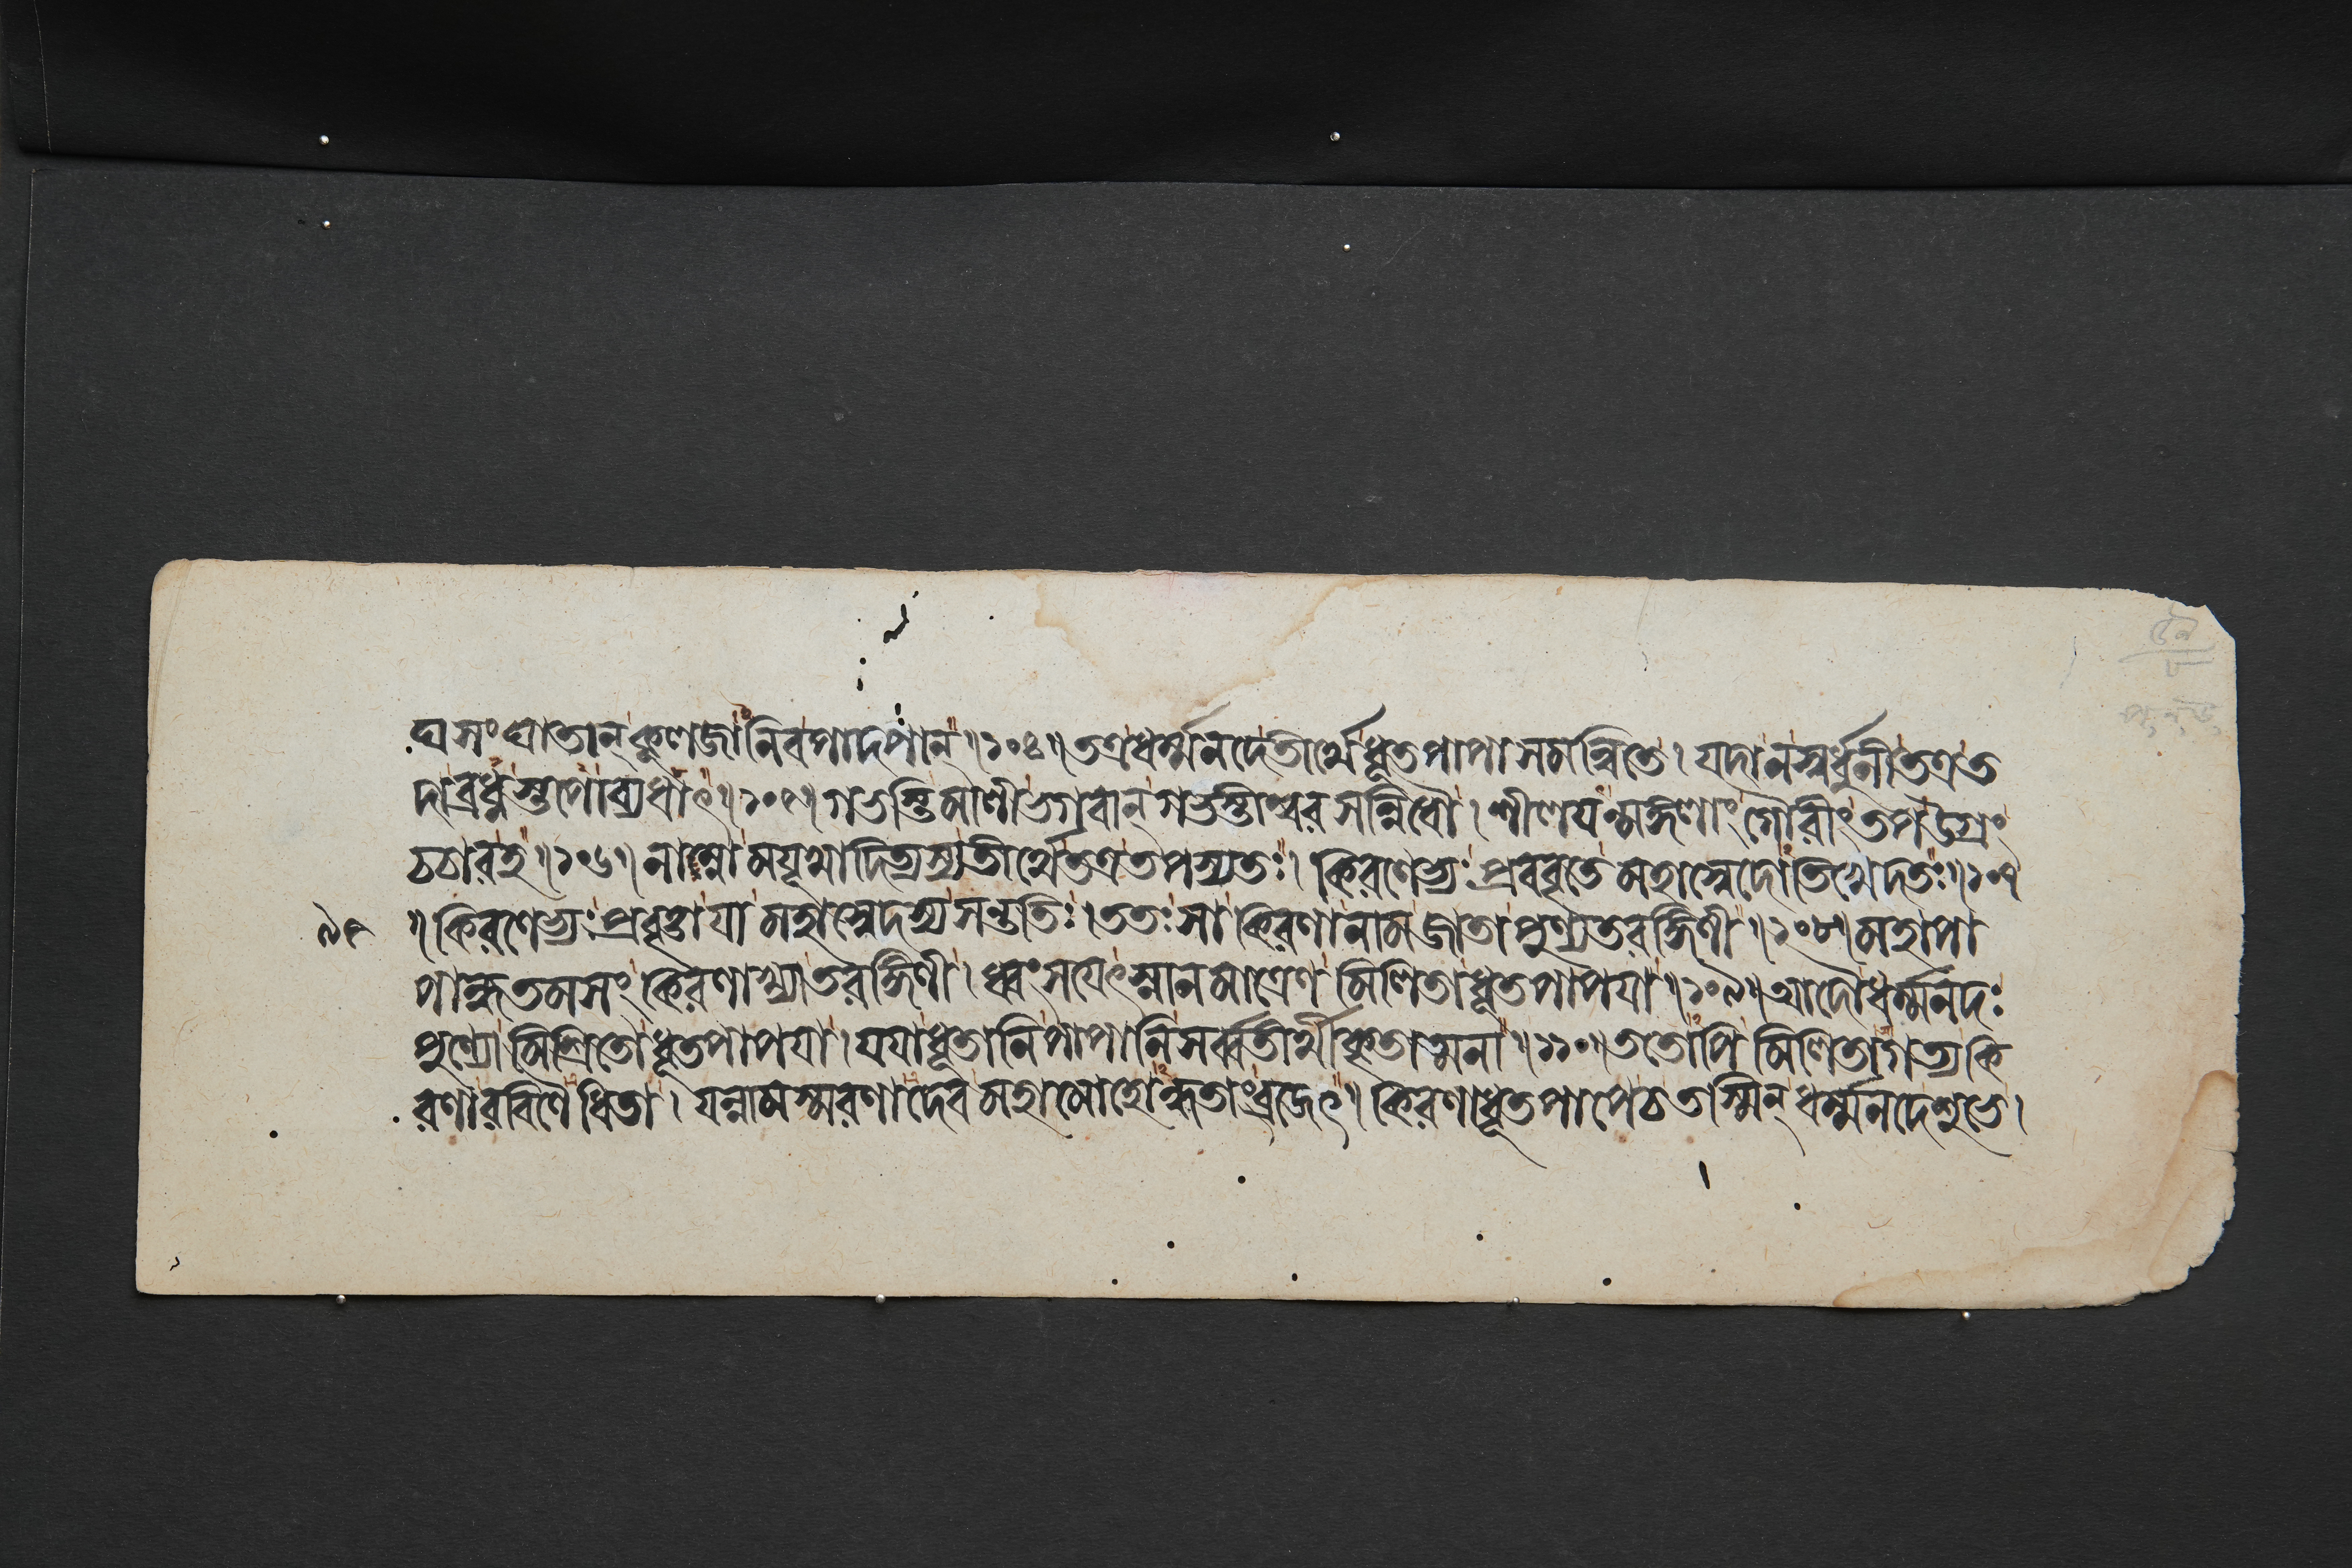 ঘসংঘাতান্কূলজানিবপাদপান্॥১০৪॥তত্রধর্ম্মনদেতীর্থেধূতপাপাসমন্বিতে।যদানস্বর্ধুনীতত্রত
দাব্রধ্নস্তপোব্যধাৎ॥১০৫॥গভস্তিমালীভগবান্গভস্তীশ্বরসন্নিধৌ।শীলযন্মঙ্গলাং গৌরীংতপউগ্রং
চচারহ॥১০৬॥নাম্নামযূখাদিত্যস্যতীর্থেতত্রতপস্যতঃ।কিরণেভ্যঃপ্রববৃতে মহাস্বেদোতিখেদতঃ॥১০৭
৯৫ ॥কিরণেভ্যঃপ্রবৃত্তাযা মহাস্বেদস্যসন্ততিঃ।ততঃসা কিরণানামজাতাপুণ্যতরঙ্গিণী॥১০৮॥মহাপা
পান্ধতমসং কিরণাখ্যাতরঙ্গিণী।ধ্বংসযেৎস্নানমাত্রেণ মিলিতাধূতপাপযা॥১০৯॥আদৌধর্ম্মনদঃ
পুণ্যোমিশ্রিতোধূতপাপযা।যযাধূতানিপাপানিসর্ব্বতীর্থীকৃতাত্মনা॥১১০॥ততোপি মিলিতাগত্যকি
রণারবিণৈধিতা।যন্নামস্মরণাদেবমহামোহোন্ধতাংব্রজেৎ।কিরণাধূতপাপেচতস্মিন্ধর্ম্মনদেশুভে।